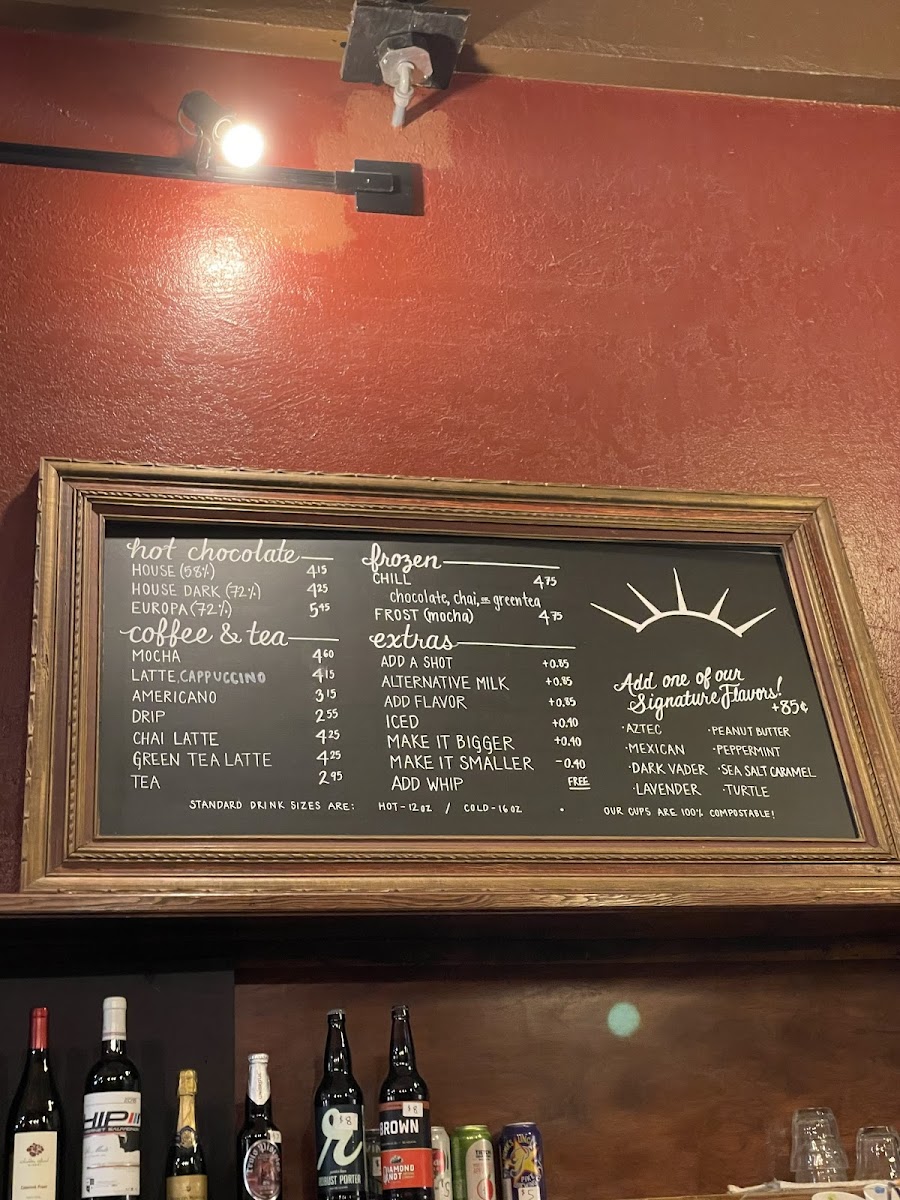 hot chocolate
HOUSE (58%) 4.15
HOUSE DARK (72%) 4.25
EUROPA (72%) 5.45
coffee & tea
MOCHA 4.60
LATTE, CAPPUCCINO 4.15
AMERICANO 3.15
DRIP 2.55
CHAI LATTE 4.25
GREEN TEA LATTE 4.25
TEA 2.95
frozen
CHILL 4.75
chocolate, chai, or green tea
FROST (mocha) 4.75
extras
ADD A SHOT +0.85
ALTERNATIVE MILK +0.85
ADD FLAVOR +0.85
ICED +0.40
MAKE IT BIGGER +0.40
MAKE IT SMALLER -0.40
ADD WHIP FREE
Add one of our
Signature Flavors!
+85¢
·AZTEC ·PEANUT BUTTER
·MEXICAN ·PEPPERMINT
·DARK VADER ·SEA SALT CARAMEL
·LAVENDER ·TURTLE
STANDARD DRINK SIZES ARE: HOT-12oz / COLD-16oz · OUR CUPS ARE 100% COMPOSTABLE!
HIP
CABERNET SAUVIGNON
$8
R
ROBUST PORTER
$8
BROWN
DIAMOND
KNOT
$5